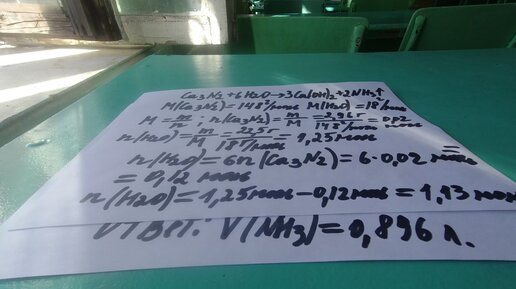 Ca₃N₂ + 6H₂O → 3Ca(OH)₂ + 2NH₃↑
M(Ca₃N₂) = 148 г/моль M(H₂O) = 18 г/моль
M = m/n ; n(Ca₃N₂) = m/M = 2,96 г/148 г/моль = 0,02
n(H₂O) = m/M = 22,5 г/18 г/моль = 1,25 моль
n(H₂O) = 6n(Ca₃N₂) = 6·0,02 моль =
= 0,12 моль
n(H₂O) = 1,25 моль – 0,12 моль = 1,13 моль
Ответ: V(NH₃) = 0,896 л.